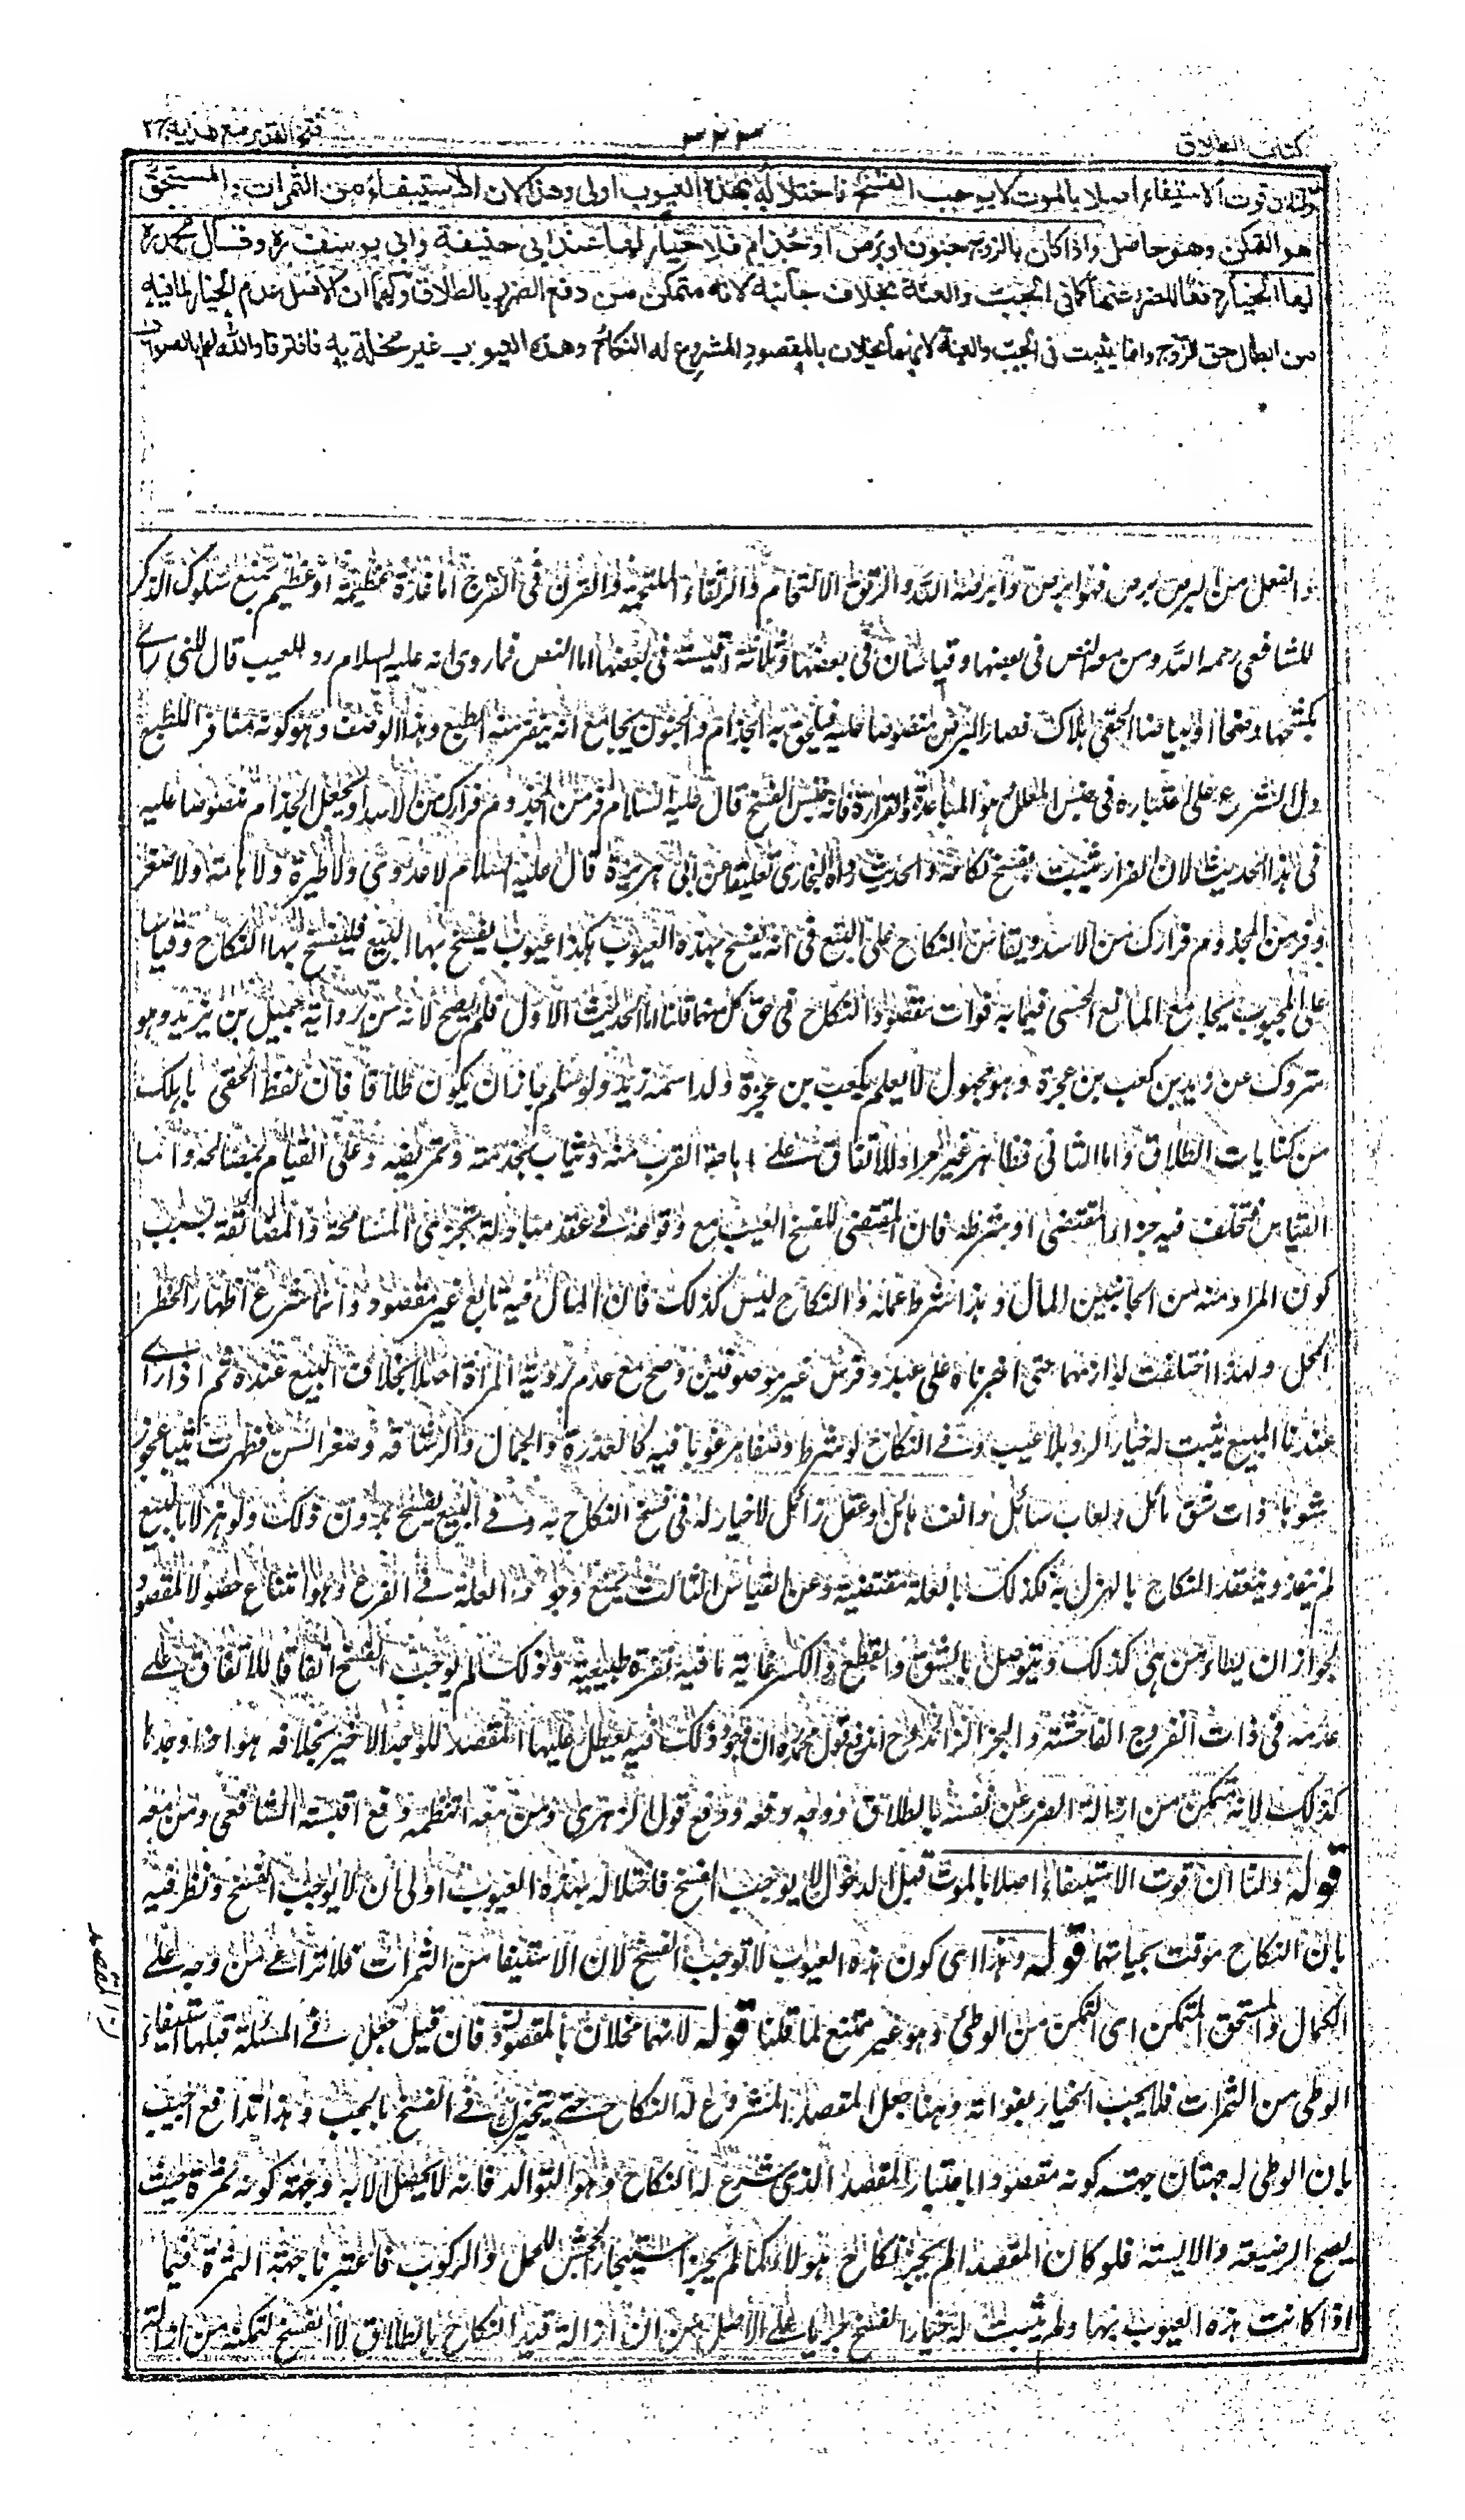 كتاب الطلاق
٢٢٣
فتح القدير مع هداية ج٢
ولنا ان فوت الاستيفاء اصلا بالموت لا يوجب الفسخ فاختلاله بهذه العيوب اولى وهذا لان الاستيفاء من الثمرات والمستحق
هو التمكن وهو حاصل واذا كان بالزوج جنون او برص او جذام فلا خيار لها عند ابي حنيفة وابي يوسف ره وقال محمد ره
لها الخيار دفعا للضرر عنها كما في الجب والعنة بخلاف جانبه لانه متمكن من دفع الضرر بالطلاق ولهما ان الاصل عدم الخيار لما فيه
من ابطال حق الزوج وانما يثبت في الجب والعنة لانهما يخلان بالمقصود المشروع له النكاح وهذه العيوب غير مخلة به فافترقا والله اعلم بالصواب
والفعل من البرص برص فهو ابرص وابرصه الله والرتق الالتحام والرتقاء الملتحمة والقرن في الفرج اما غدة غليظة او عظيم يمنع سلوك الذكر
للشافعي رحمه الله ومن معه النص في بعضها وقياسان في بعضها وثلاثة اقيسة في بعضها اما النص فما روى انه عليه السلام رد بالعيب قال للتي راى
بكشحها وضحا او بياضا الحقي باهلك فصار البرص منصوصا عليه فيلحق به الجذام والجنون بجامع انه ينفر منه الطبع وهذا الوصف وهو كونه منافر اللطبع
دل الشرع على اعتباره في جنس المعلل هو المباعدة والفرار فانه جنس الفسخ قال عليه السلام فر من المجذوم فرارك من الاسد او يجعل الجذام منصوصا عليه
في هذا الحديث لان الفرار يثبت بفسخ نكاحه والحديث رواه البخاري تعليقا عن ابي هريرة قال عليه السلام لا عدوى ولا طيرة ولا هامة ولا صفر
وفر من المجذوم فرارك من الاسد ويقاس النكاح على البيع في انه يفسخ بهذه العيوب هكذا عيوب يفسخ بها البيع فليفسخ بها النكاح وقياسا
على المجبوب بجامع المانع الحسى فيما به فوات مقصود النكاح في حق كل منهما قلنا اما الحديث الاول فلم يصح لانه من رواية جميل بن يزيد وهو
متروك عن زيد بن كعب بن عجرة وهو مجهول لا يعلم لكعب بن عجرة ولد اسمه زيد ولو سلم جاز ان يكون طلاقا فان لفظ الحقي باهلك
من كنايات الطلاق واما الثاني فظاهر غير مراد للاتفاق على اباحة القرب منه ويثاب بخدمته وتمريضه وعلى القيام بمصالحه واما
القياس فتخلف فيه جزء المقتضى او شرطه فان المقتضى للفسخ العيب مع وقوعه في عقد مبادلة تجري المسامحة والمضايقة بسبب
كون المراد منه من الجانبين المال وهذا شرط عمله والنكاح ليس كذلك فان المال فيه تابع غير مقصود وانما شرع اظهارا لخطر
المحل ولهذا اختلفت لوازمهما حتى اجزناه على عبد وفرس غير موصوفين وصح مع عدم رؤية المرأة اصلا بخلاف البيع عنده ثم اذا راى
عندنا المبيع يثبت له خيار الرد بلا عيب وفي النكاح لو شرط وصفا مرغوبا فيه كالعذرة والجمال والرشاقة وصغر السن فظهرت ثيبا عجوز
شوهاء ذات شق مائل ولعاب سائل وانف هائل وعقل زائل لا خيار له في فسخ النكاح به وفي البيع يفسخ بدون ذلك ولو هزلا بالبيع
لم ينفذ وينعقد النكاح بالهزل به فكذلك بالعلة مقتضية وعن القياس الثالث بمنع وجود العلة في الفرع وهو امتناع حصول المقصود
لجواز ان يطاء من هي كذلك ويتوصل بالشق والقطع والكسر غاية ما فيه نفرة طبيعية وذلك لم يوجب الفسخ اتفاقا للاتفاق على
عدمه في ذات القروح الفاحشة والبخر الزائد وح اندفع قول محمد ره ان وجود ذلك فيه يعطل عليها المقصد للوجه الاخير بخلافه هو اذا وجدها
كذلك لانه متمكن من ازالة الضرر عن نفسه بالطلاق ووجه دفعه ودفع قول الزهري ومن معه انتظمه دفع اقيسة الشافعي ومن معه
قوله ولنا ان فوت الاستيفاء اصلا بالموت قبل الدخول لا يوجب الفسخ فاختلاله بهذه العيوب اولى ان لا يوجب الفسخ ونظر فيه
بان النكاح موقت بحياتهما قوله وهذا اى كون هذه العيوب لا توجب الفسخ لان الاستيفا من الثمرات فلا تراعى من وجه على
الكمال والمستحق التمكن اى التمكن من الوطئ وهو غير ممتنع لما قلنا قوله لانهما مخلان بالمقصود فان قيل جعل في المسئلة قبلها استيفاء
الوطى من الثمرات فلا يجب الخيار بفواته وههنا جعل المقصد المشروع له النكاح حتى يتخيرن في الفسخ بالجب وهذا تدافع اجيب
بان الوطى له جهتان جهة كونه مقصودا باعتبار المقصد الذي شرع له النكاح وهو التوالد فانه لا يحصل الا به وجهة كونه ثمرة حيث
يصح الرضيعة والايسة فلو كان المقصد لم يجز نكاح هولاء كما لم يجز استيجار الجحش للحمل والركوب فاعتبرنا جهة الثمرة فيما
اذا كانت هذه العيوب بها ولم يثبت له خيار الفسخ جريا على الاصل من ان ازالة قيد النكاح بالطلاق لا الفسخ لتمكنه من ازالته